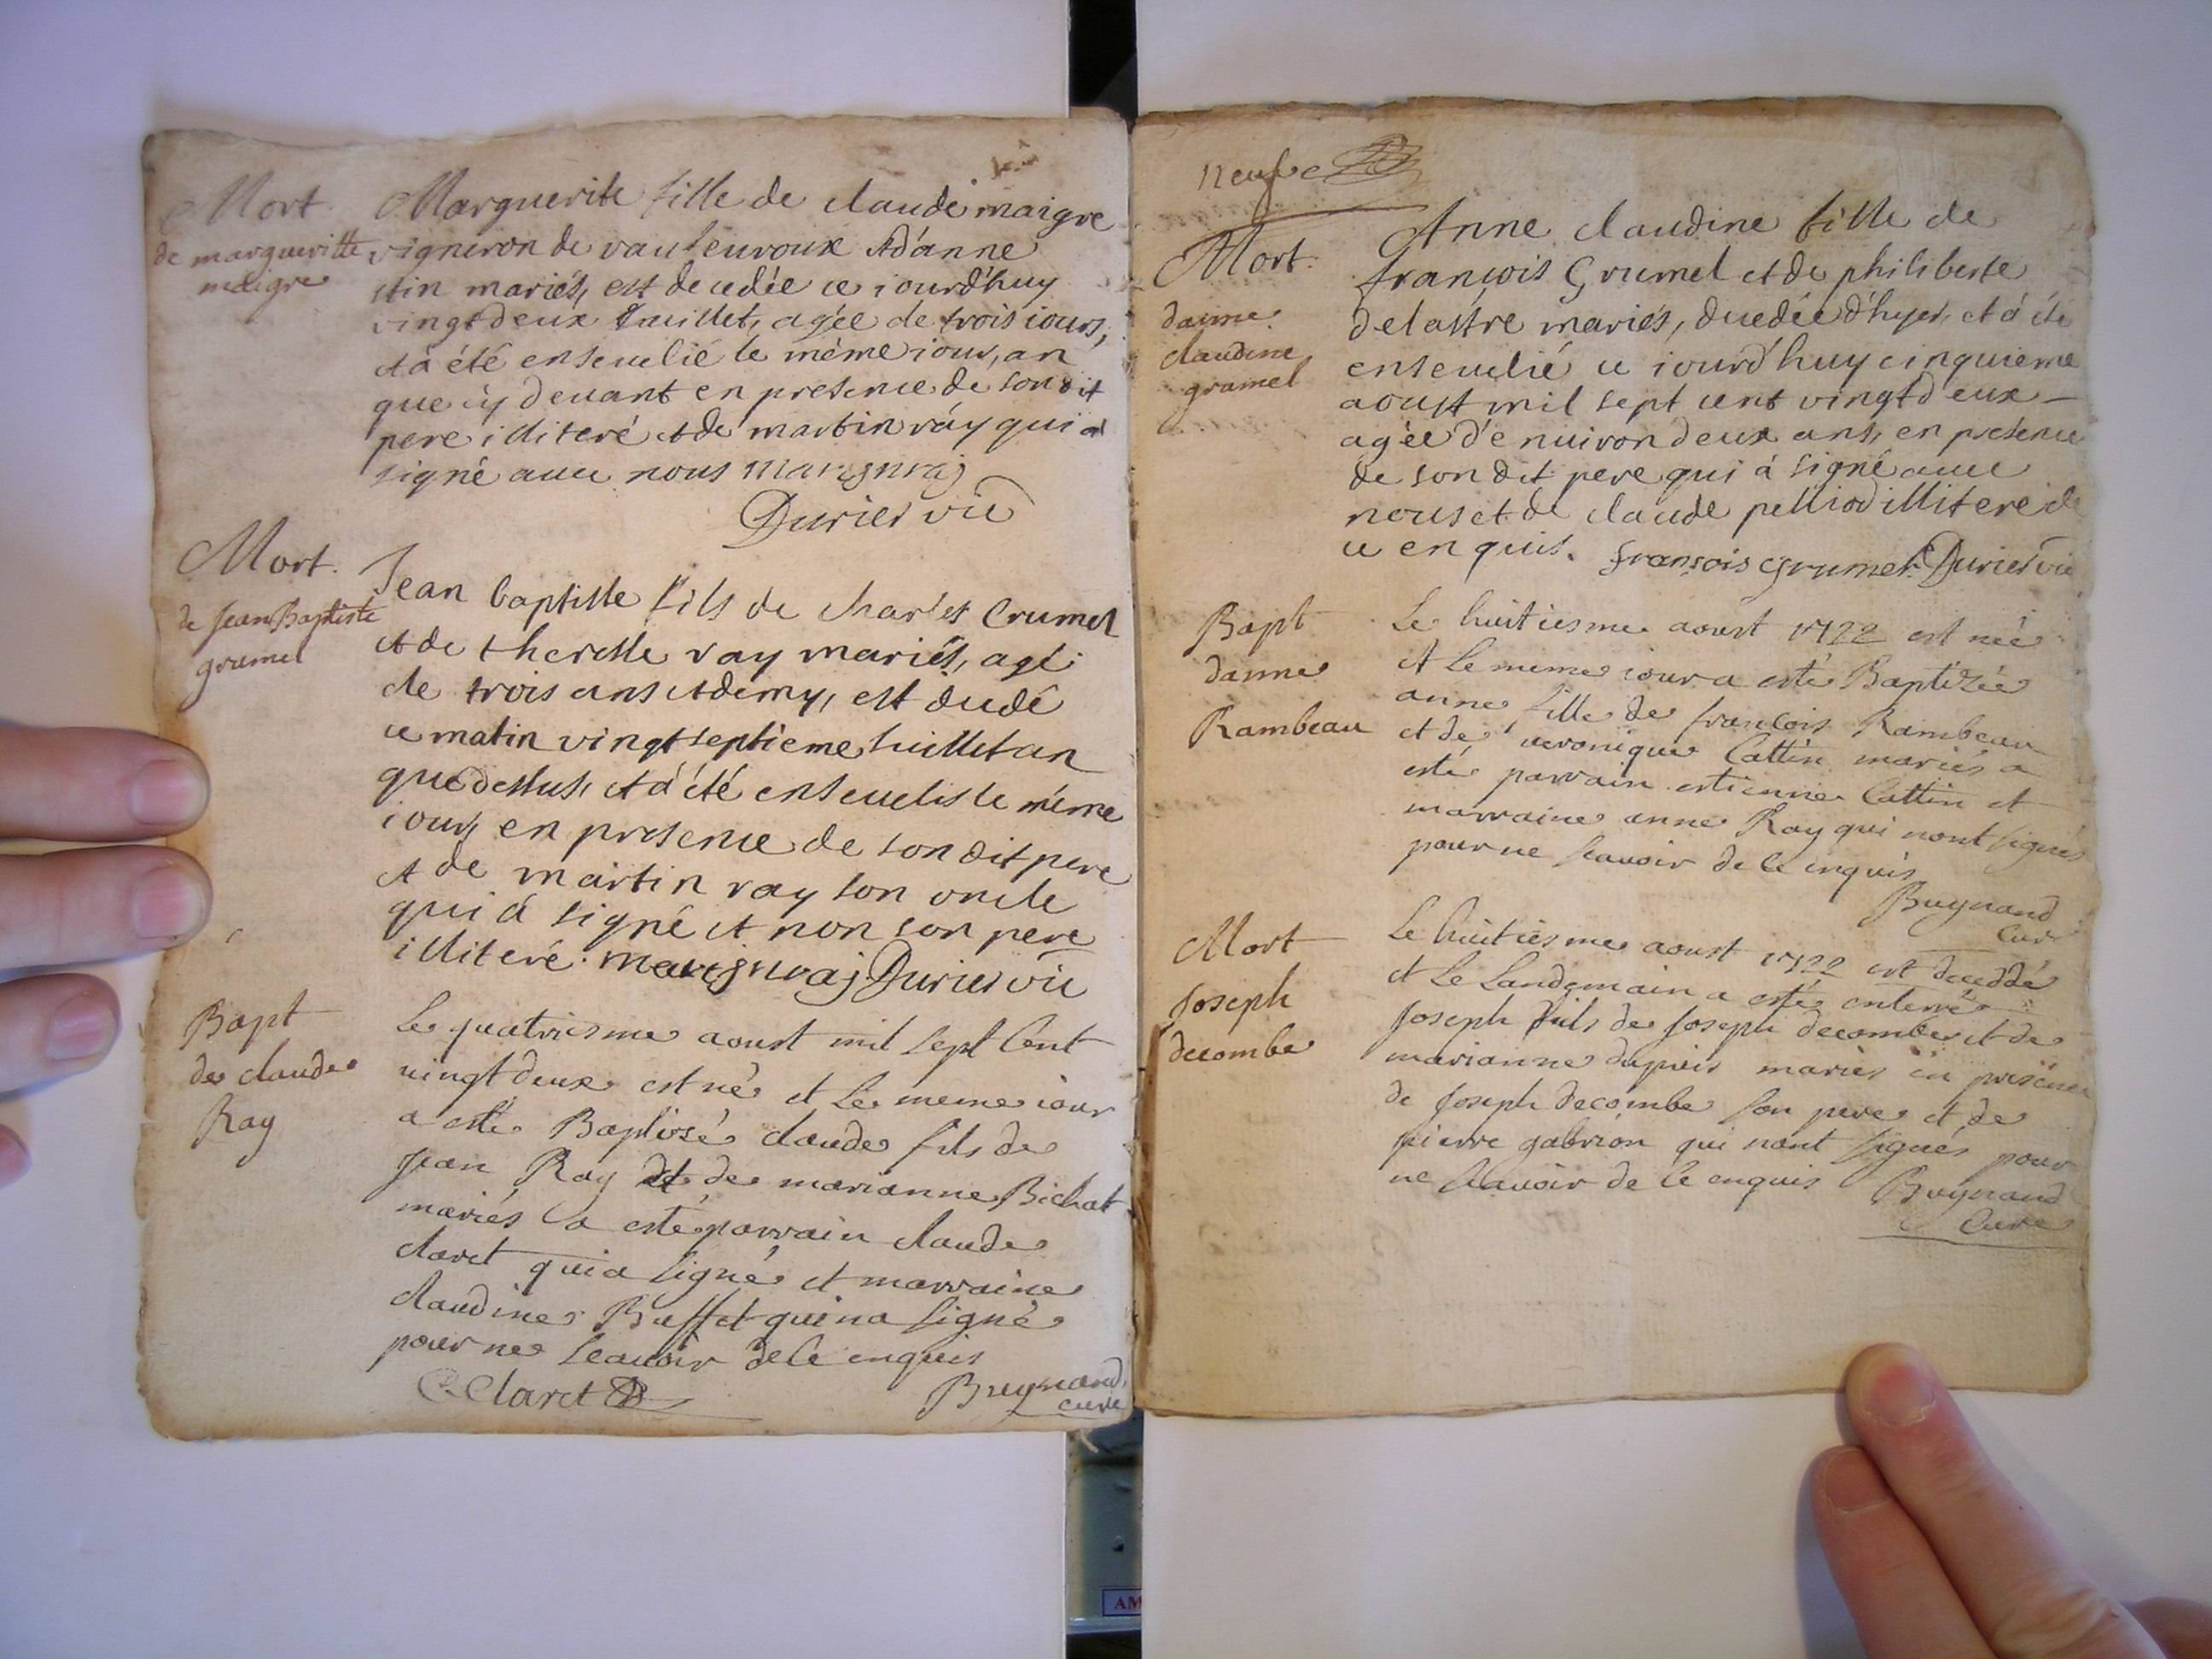 Mort
de margueritte
meigre
Marguerite fille de claude maigre
vigneron de vauleuroux et d'anne
mariés, est decedée ce iourd'huy
vingt deux Juillet, agée de trois iours,
et à été enseuelié le même iour, an
que cy deuant en presence de son dit
pere illiteré et de martin ráy qui a
signé auec nous
Durier vic
Mort.
de Jean Baptiste
grumel
Jean baptiste fils de charles Crumel
et de therese ray mariés, agé
de trois ans et demy, est decedé
ce matin vingt septieme Iuillet an
que dessus, et à été enseuelis le même
iour, en presence de son dit pere
et de martin ray son oncle
qui à signé et non son pere
illiteré. Durier vic
Bapt
de claude
Ray
Le quatriesme aoust mil sept Cent
uingt deux est né et Le meme iour
a esté Baptisé claude fils de
Jean Ray et de marianne Bichat
mariés a esté parrain claude
claret qui a signé et marraine
claudine Buffet qui na signé
pour ne scauoir de ce enquis
C. Claret
Buynand
curé
neuf
Mort.
danne
claudine
grumel
Anne claudine fille de
françois Grumel et de philiberte
delastre mariés, decedée d'hyer, et à été
enseuelié ce iourd'huy cinquieme
aoust mil sept cent vingt deux —
agée d'enuiron deux ans, en présence
de son dit pere qui à signé auec
nous et de claude pelliod illiteré de
ce enquis. françois grumel Durier vic
Bapt
danne
Rambeau
Le huitiesme aoust 1722 est née
et Le meme iour a esté Baptizée
anne fille de françois Rambeau
et de ueronique Cattin mariés a
esté parrain estienne Cattin et
marraine anne Ray qui nont signés
pour ne scauoir de ce enquis
Buynand
Curé
Mort
Joseph
decombe
Le huitiesme aoust 1722 est decedé
et Le Landemain a esté enterré
Joseph fils de Joseph decombe et de
marianne dupuis mariés en presence
de Joseph decombe son pere et de
pierre gabrion qui nont signés pour
ne scauoir de ce enquis Buynand
Curé